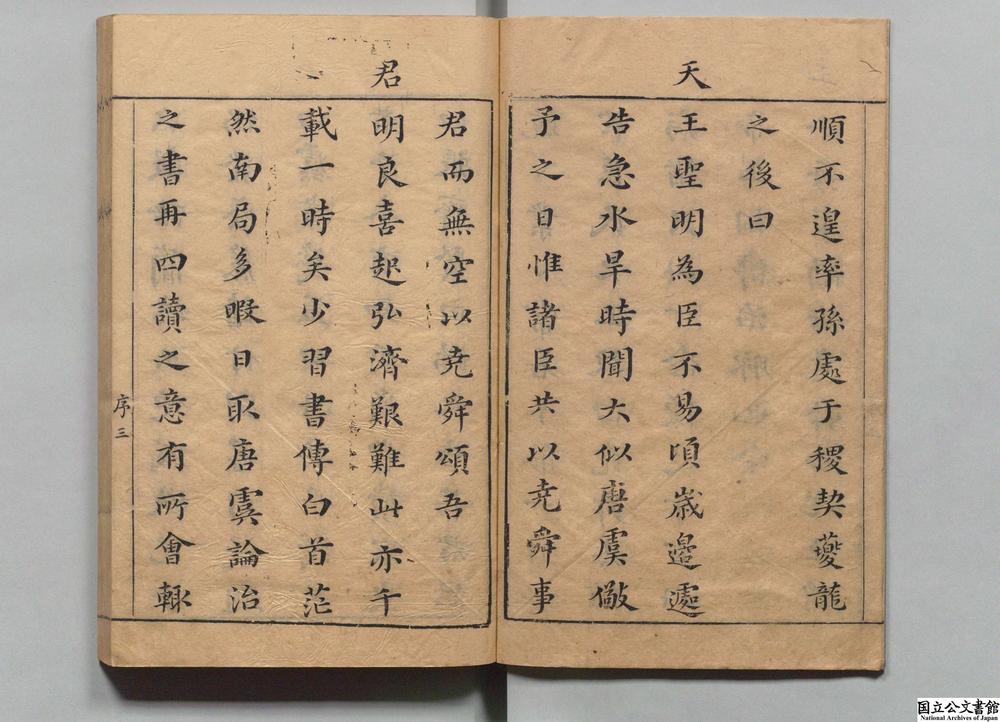 順不遑率孫處于稷契夔龍
之後曰
天
王聖明為臣不易頃歲邉遽
告急水旱時聞大似唐虞儆
予之日惟諸臣共以尭舜事
君
君而無空以尭舜頌吾
明良喜起弘濟艱難此亦千
載一時矣少習書傳白首茫
然南局多暇日取唐虞論治
之書再四讀之意有所會輙
序三
国立公文書館
National Archives of Japan